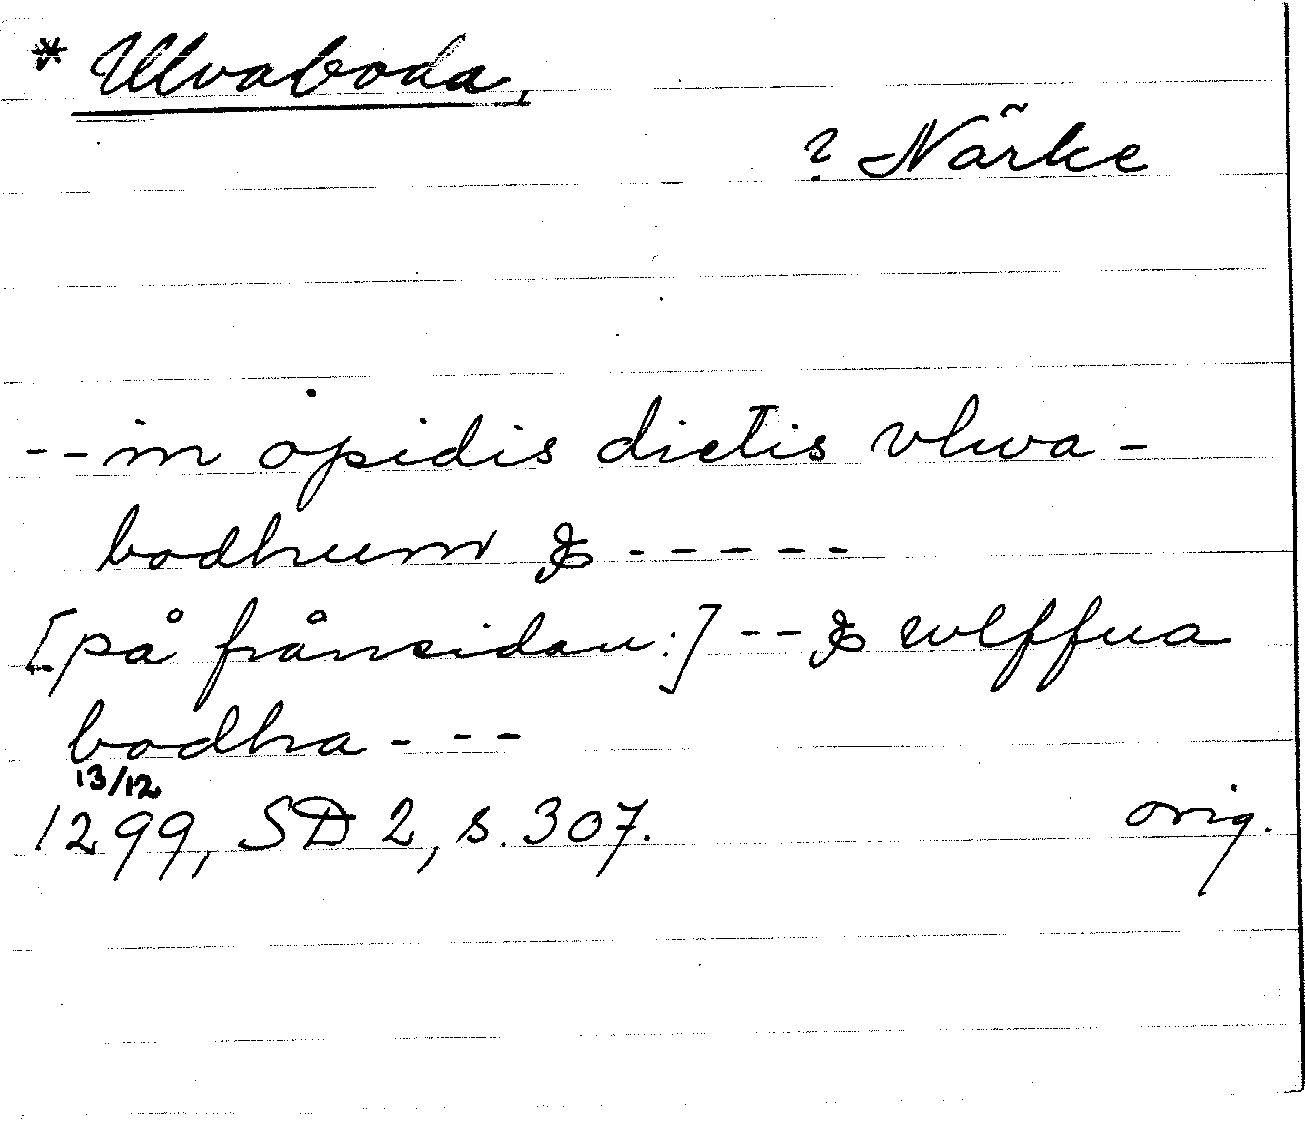 * Ulvaboda,
? Närke
-- in opidis dictis vlwa-
bodhum & -----
[på frånsidan:] -- & wlffua
bodha - --
13/12
1299, SD 2, s. 307. orig.